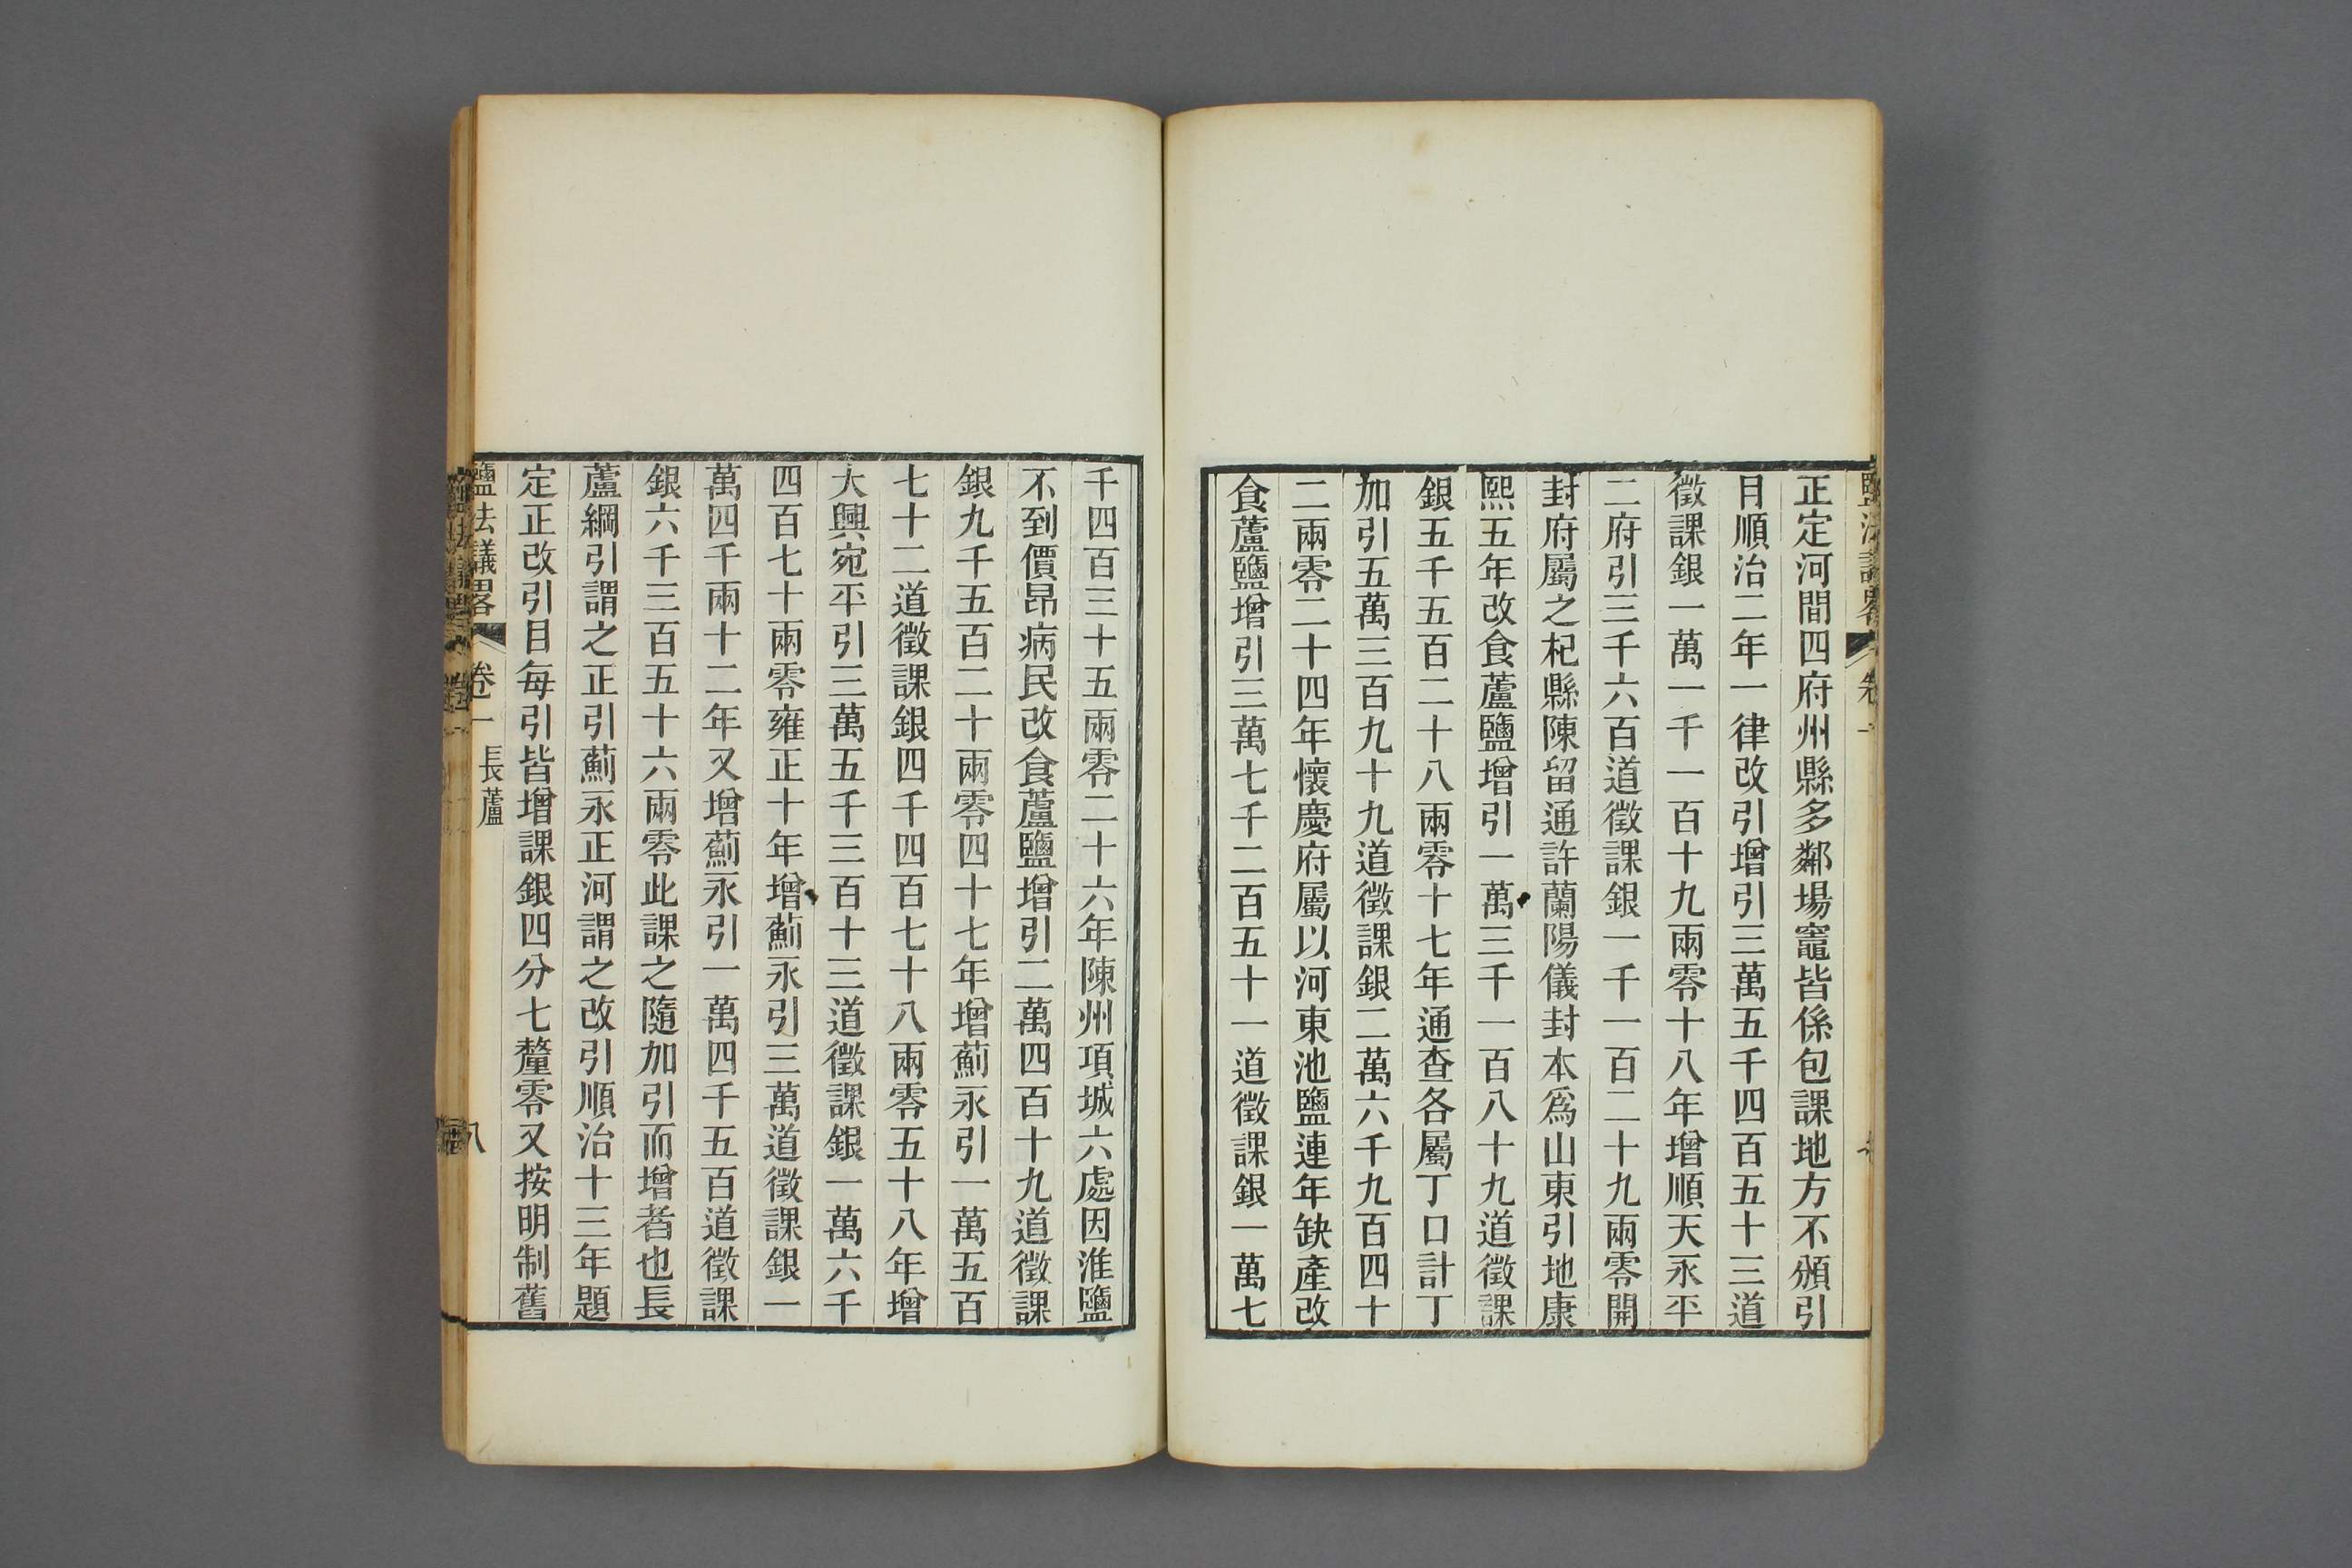 正定河間四府州縣多鄰場竈皆係包課地方不頒引
目順治二年一律改引增引三萬五千四百五十三道
徵課銀一萬一千一百十九兩零十八年增順天永平
二府引三千六百道徵課銀一千一百二十九兩零開
封府屬之杞縣陳留通許蘭陽儀封本爲山東引地康
熙五年改食蘆鹽增引一萬三千一百八十九道徵課
銀五千五百二十八兩零十七年通查各屬丁口計丁
加引五萬三百九十九道徵課銀二萬六千九百四十
二兩零二十四年懷慶府屬以河東池鹽連年缺產改
食蘆鹽增引三萬七千二百五十一道徵課銀一萬七
千四百三十五兩零二十六年陳州項城六處因淮鹽
不到價昂病民改食蘆鹽增引二萬四百十九道徵課
銀九千五百二十兩零四十七年增薊永引一萬五百
七十二道徵課銀四千四百七十八兩零五十八年增
大興宛平引三萬五千三百十三道徵課銀一萬六千
四百七十兩零雍正十年增薊永引三萬道徵課銀一
萬四千兩十二年又增薊永引一萬四千五百道徵課
銀六千三百五十六兩零此課之隨加引而增者也長
蘆綱引謂之正引薊永正河謂之改引順治十三年題
定正改引目每引皆增課銀四分七釐零又按明制舊
鹽法議畧 卷一 長蘆 八